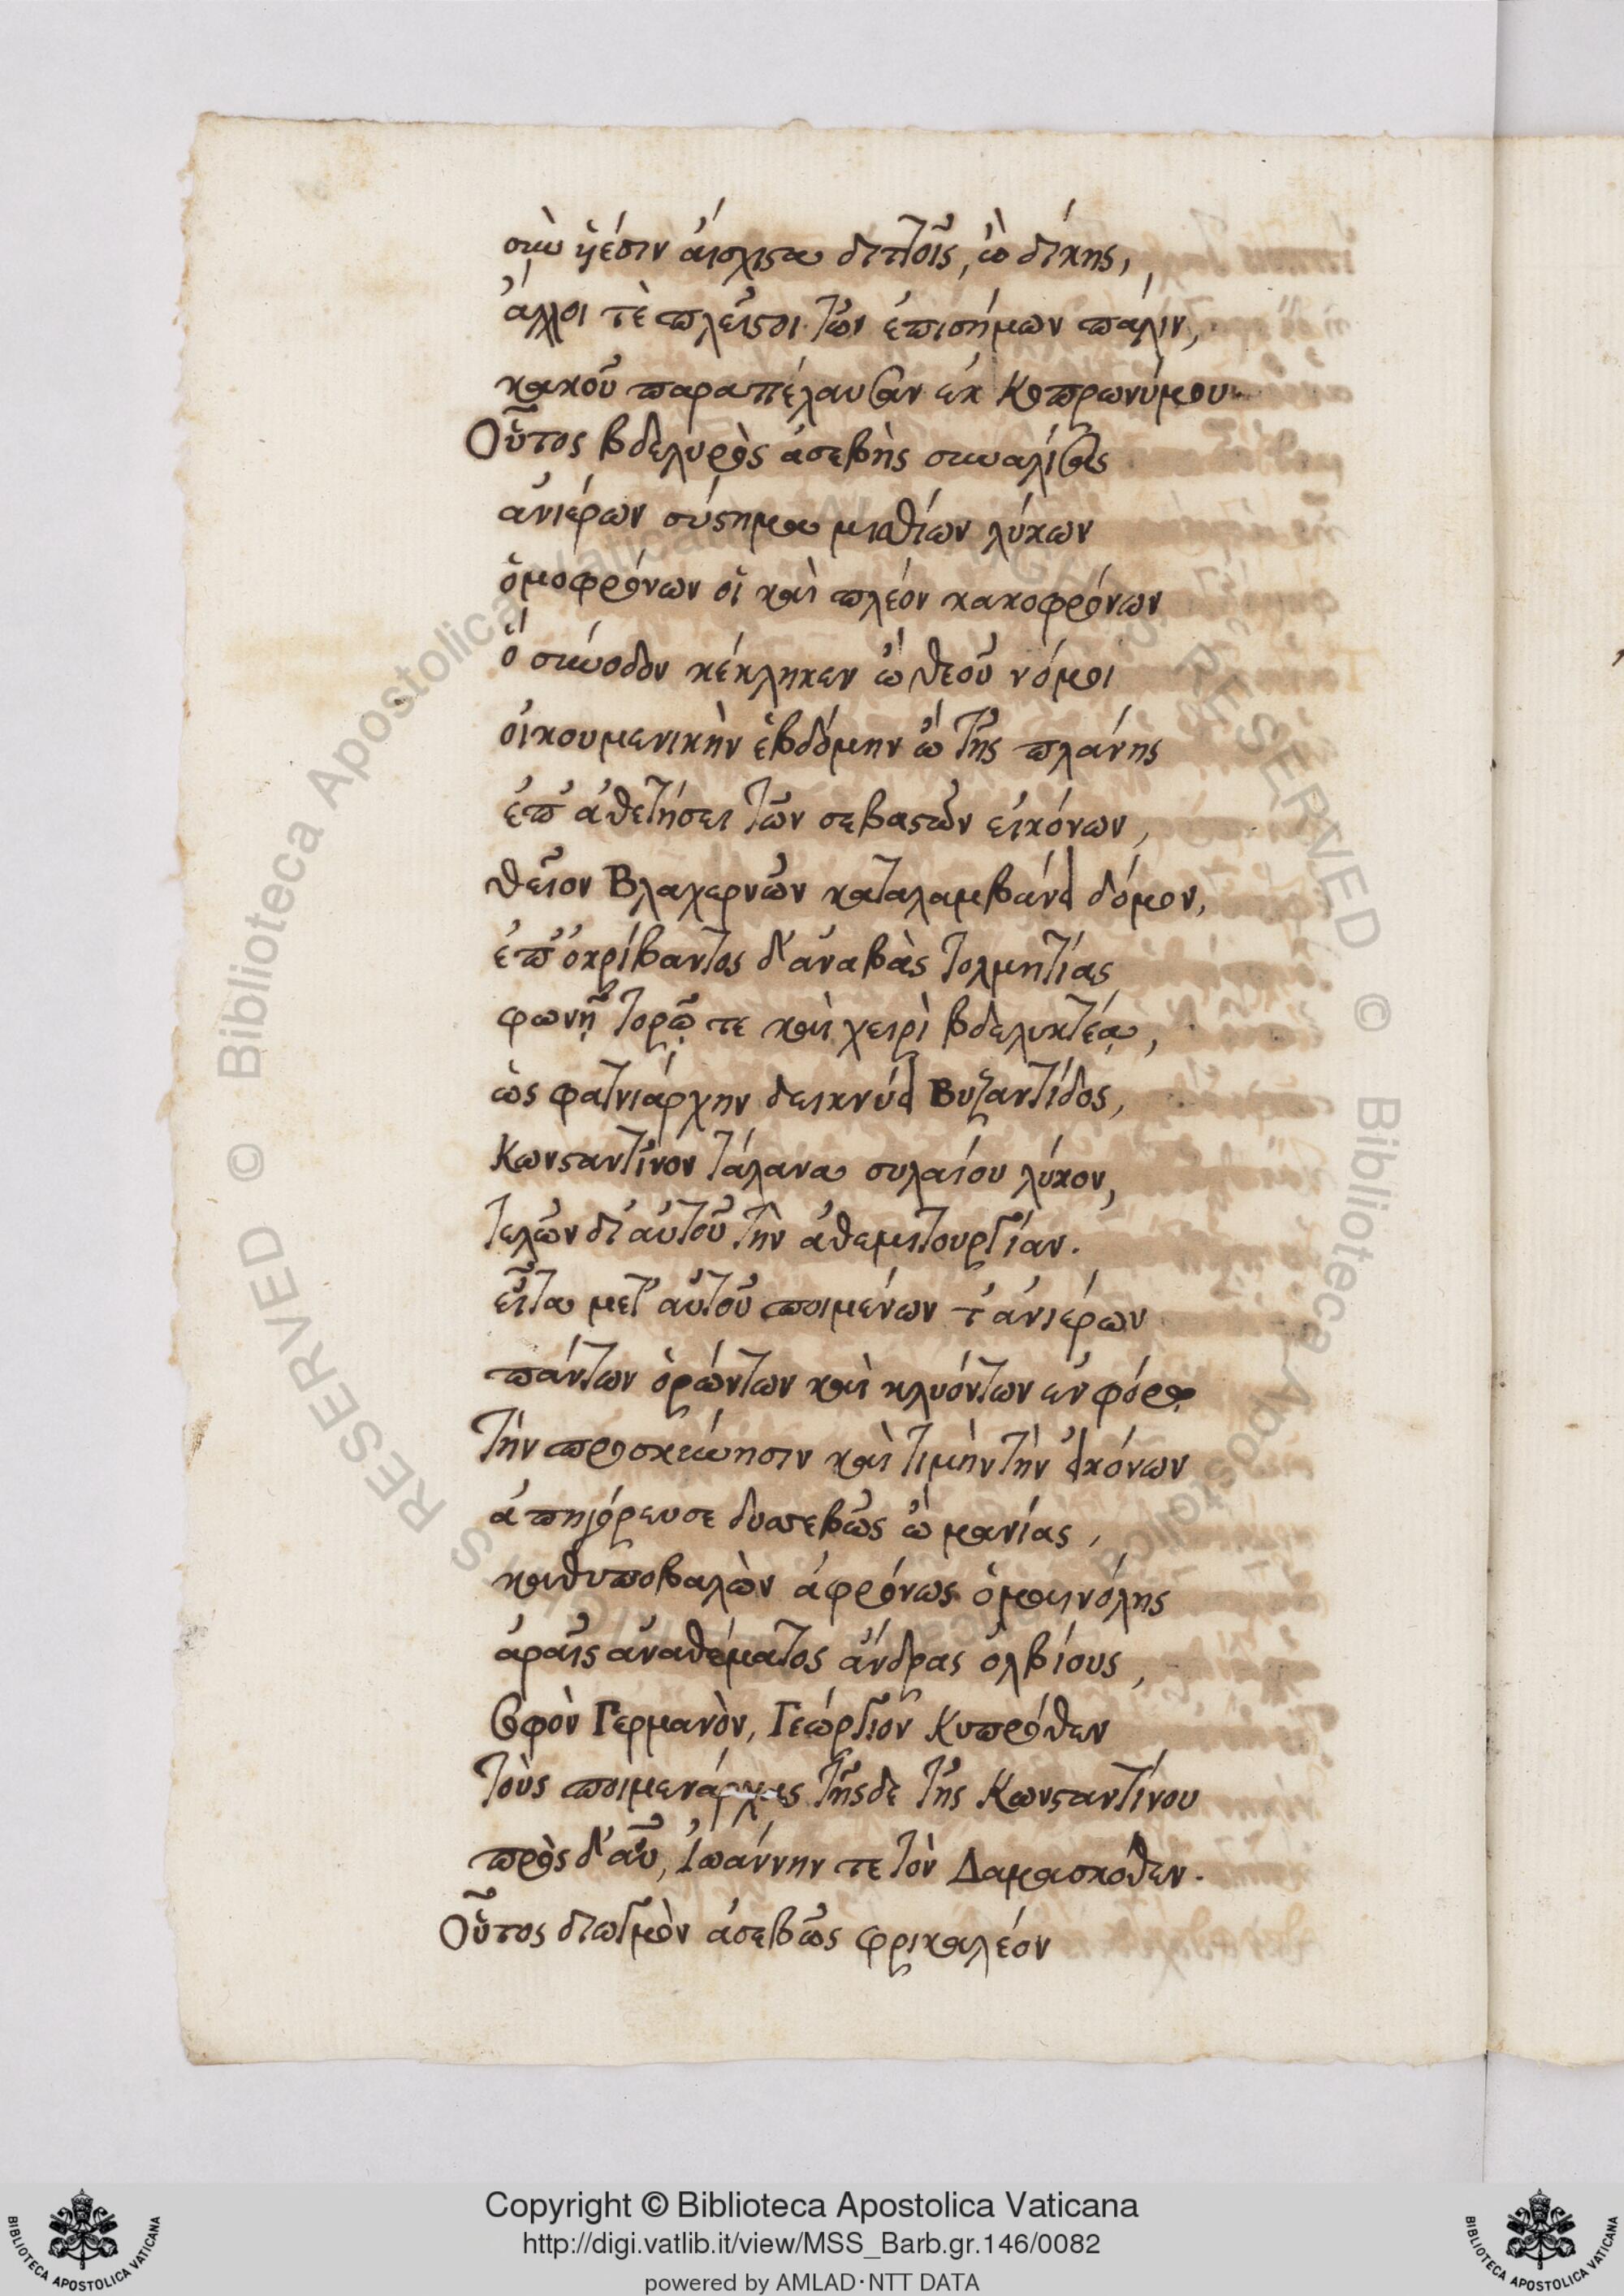 σὺν υἱέσιν αἴσχιστα διττοῖς, ὢ δίκης,
ἄλλοι τὲ πλεῖστοι τῶν ἐπισήμων πάλιν,
κακοῦ παραπέλαυσαν ἐκ Κοπρωνύμου.
Οὗτος βδελυρὸς ἀσεβὴς συναλίσας
ἀνιέρων σύστημα μισθίων λύκων
ὁμοφρόνων οἷ καὶ πλέον κακοφρόνων
ὃ σύνοδον κέκληκεν ὢ θεοῦ νόμοι
οἰκουμενικὴν ἑβδόμην ὢ τῆς πλάνης
ἐπ' ἀθετήσει τῶν σεβαστῶν εἰκόνων,
θεῖον Βλαχερνῶν καταλαμβάνει δόμον,
ἐπ' ὀκρίβαντος δ' ἀναβὰς τολμητίας
φωνῇ τορῷ τε καὶ χειρὶ βδελυκτέᾳ,
ὡς φατνιάρχην δεικνύει Βυζαντίδος,
Κωνσταντῖνον τάλανα συλαίου λύκον,
τελῶν δι' αὐτοῦ τὴν ἀθεμιτουργίαν.
εἶτα μετ' αὐτοῦ ποιμένων τ' ἀνιέρων
πάντων ὁρώντων καὶ κλυόντων ἐν φόρῳ
τὴν προσκύνησιν καὶ τιμὴν τὴν εἰκόνων
ἀπηγόρευσε δυσσεβῶς ὢ μανίας,
καθυποβαλὼν ἀφρόνως ὁ μαινόλης
ἀραῖς ἀναθέματος ἄνδρας ὀλβίους,
σοφὸν Γερμανὸν, Γεώργιον Κυπρόθεν
τοὺς ποιμενάρχας τῆσδε τῆς Κωνσταντίνου
πρὸς δ' αὖ, Ἰωάννην τε τὸν Δαμασκόθεν.
Οὗτος διωγμὸν ἀσεβῶς φρικαλέον
Copyright © Biblioteca Apostolica Vaticana
http://digi.vatlib.it/view/MSS_Barb.gr.146/0082
powered by AMLAD·NTT DATA